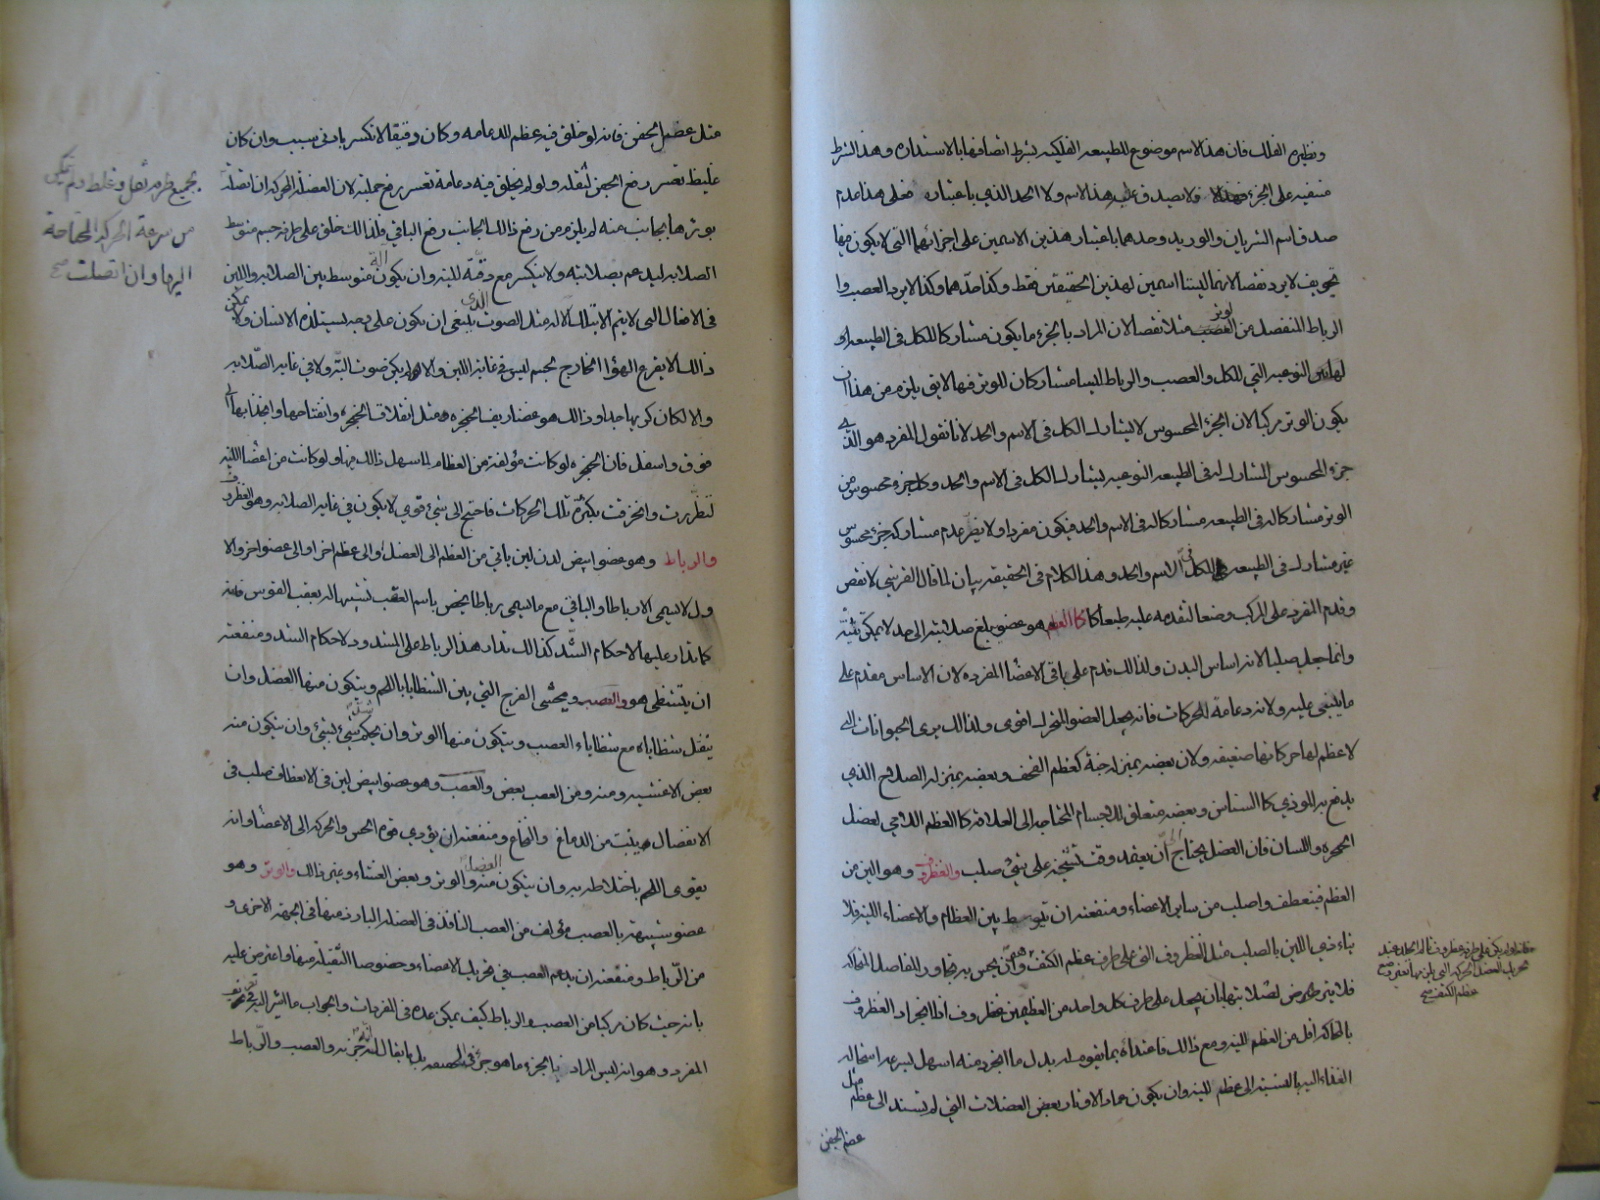 ونظيره الفلك فان هذا الاسم موضوع للطبيعه الفلكيه بشرط اتصافها بالاستداره وهذا الشرط
منتفيه على الجزء ولا يصدق عليه هذا الاسم ولا الحد الذي باعتباره فعلى هذا عدم
صدق اسم الشريان والوريد وحدهما باعتبار هذين الاسمين على اجزائهما التى لا يكون فيها
تجويف لا يرد نقضا لانهما ليستا اسمين لهذين الحقيقتين فقط وكذا حدهما وكذا لا يرد العصب و
الرباط المنفصل من الوتر مثلا نقضا لان المراد بالجزء ما يكون مشاركا للكل فى الطبيعه او
النوعيه التي للكل والعصب والرباط ليسا مشاركان للوتر فيها لا يق يلزم من هذا ان
يكون الوتر مركبا لان الجزء المحسوس لا يشارك الكل فى الاسم والحد لانا نقول المفرد هو الذي
جزء المحسوس المشارك له فى الطبيعه النوعيه يشارك الكل فى الاسم والحد وكل جزء محسوس من
الوتر مشارك له فى الطبيعه مشارك له فى الاسم والحد فيكون مفردا ولا يضر عدم مشاركه جزء محسوس
غير مشارك فى الطبيعه للكل فى الاسم والحد وهذا الكلام فى الحقيقه بيان لما قال القرشي لا نقض
وقدم المفرد على المركب وضعا لتقدمه عليه طبعا كالعظم هو عضو يبلغ صلابته الى حد لا يمكن تثنيته
وانما جعل صلبا لانه اساس البدن ولذلك قدم على باقى الاعضا المفرده لان الاساس مقدم على
ما يبتنى عليه ولانه دعامة للحركات فانه يجعل العضو المتحرك اقوى ولذلك يرى الحيوانات التى
لا عظم لها حركاتها ضعيفه ولان بعضه بمنزله جنة كعظم القحف وبعضه بمنزله السلاح الذي
يدفع به الموذي كالسناسن وبعضه متعلق للاجسام المحتاجه الى العلاقه كالعظم اللامي لعضل
الحنجره واللسان فان العضل يحتاج الى ان يعتمد وقت تشنجه على شئ صلب والغضروف وهو الين من
العظم فينعطف واصلب من سائر الاعضاء ومنفعته ان يتوسط بين العظام والاعضاء اللينه فلا
يتاذى اللين بالصلب مثل الغضروف التى على طرف عظم الكتف وان يحسن به تجاور المفاصل المتحاكه
فلا يترضرض لصلابتها بان يجعل على طرف كل واحد من العظمين غضروف اذ انجراد الغضروف
بالمحاكه اقل من العظم للينه ومع ذلك فاعتداه بما يقوم له بدل ما انجرد منه اسهل لسرعه استحاله
الغذاء اليه بالنسبة الى عظم للينه وان يكون عمادا لاوتار بعض العضلات التى لم تستند الى عظم مثل
عضل الجفن
عظم الكتف صح
مثل عضل الجفن فانه لو خلق فيه عظم للدعامه وكان دقيقا لانكسر بادنى سبب وان كان
غليظا تعسر رفع الجفن لثقله ولو لم يخلق فيه دعامة تعسر رفع جملته لان العضلة المحركه ان اتصلت
بوترها بجانب منه لم يلزم من رفع ذلك الجانب رفع الباقي فلذلك خلق على طرفه جسم متوسط
الصلابه ليدعم بصلابته ولا ينكسر مع دقته للينه وان يكون آلة متوسطه بين الصلابه واللين
فى الافعال التى لا يتم الا بتلك الاله مثل الصوت الذي ينبغى ان يكون على وجه يستلذه الانسان ولا يمكن
ذلك الا بقرع الهواء الخارج بجسم ليس فى غايه اللين والا لم يكن صوت البتة ولا فى غايه الصلابه
والا لكان كريها جدا وذلك هو غضاريف الحنجره مثل انغلاق الحنجره وانفتاحها وانجذابها الى
فوق واسفل فان الحنجره لو كانت مؤلفة من العظام لما سهل ذلك فيها ولو كانت من اعضا اللينه
لتضررت وانخرقت بكثرة تلك الحركات فاحتج الى شئ قوي لا يكون في غايه الصلابه وهو الغضروف
والرباط وهو عضو ابيض لدن لين ياتي من العظم الى العضل والى عظم اخر او الى عضو اخر والا
ول لا يسمى الا رباطا والباقي مع ما يسمى رباطا يخص باسم العقب تشبيها له بعقب القوس فانه
كما تدار عليها لاحكام الشد كذلك تدار هذا الرباط على المشدود لاحكام الشد ومنفعته
ان يتشظى هو والعصب ويحشى الفرج التي بين الشظايا باللحم ويتكون منها العضل وان
يتفتل شظاياه مع شظايا العصب ويتكون منها الوتر وان يحكم شد شئ بشئ وان يتكون منه
بعض الاغشيه ومنه ومن العصب بعض والعصب وهو عضو ابيض لين فى الانعطاف صلب فى
الانفصال ينبت من الدماغ والنخاع ومنفعته ان يؤدي قوة الحس والحركه الى الاعضا وانه
يقوى اللحم باختلاطه به وان يتكون منه العضل والوتر وبعض الغشاء وغير ذلك والوتر وهو
عضو شبيه بالعصب مؤلف من العصب النافذ فى العضله البارزه منها فى الجهة الاخرى و
من الرباط ومنفعته ان يدعم العصب في تحريك الاعضاء وخصوصا الثقيلة منها واعترض عليه
بانه حيث كان مركبا من العصب والرباط كيف يمكن عده فى المفردات والجواب ما اشير اليه في تعريف
المفرد وهو انه ليس المراد بالجزء ما هو جزء فى الحقيقه بل ما يقال له انه جزئه والعصب والرباط
بجميع طرفه ثقل وغلظ ولم يمكن
من سرعة الحركه المحتاجة
اليها وان اتصلت صح